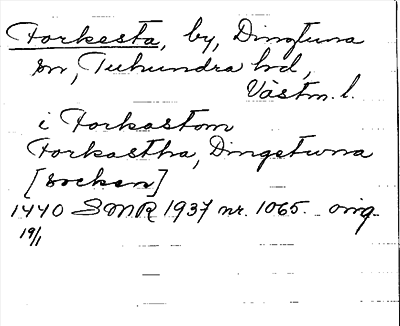 Forkesta, by, Dingtuna
sn, Tuhundra hd,
Västm. l.
i Forkastom
Forkastha, Dingetwna
[socken]
1440 SMR 1937 nr. 1065. orig.
19/1